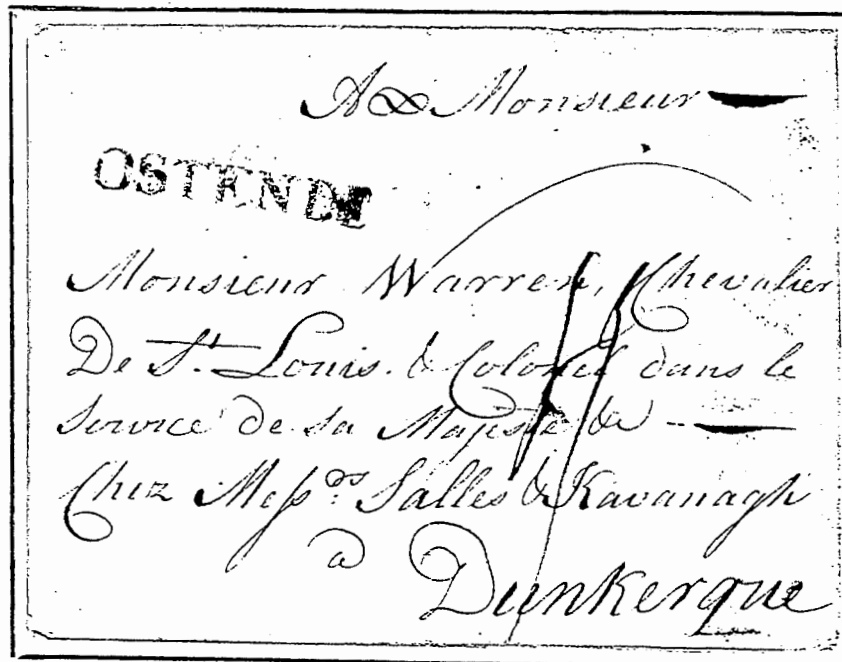 A Monsieur
OSTENDE
Monsieur Warren, Chevalier
De St. Louis. & Colonel dans le
Service de sa Majesté &
Chez Messrs Salles & Kavanagh
a
Dunkerque